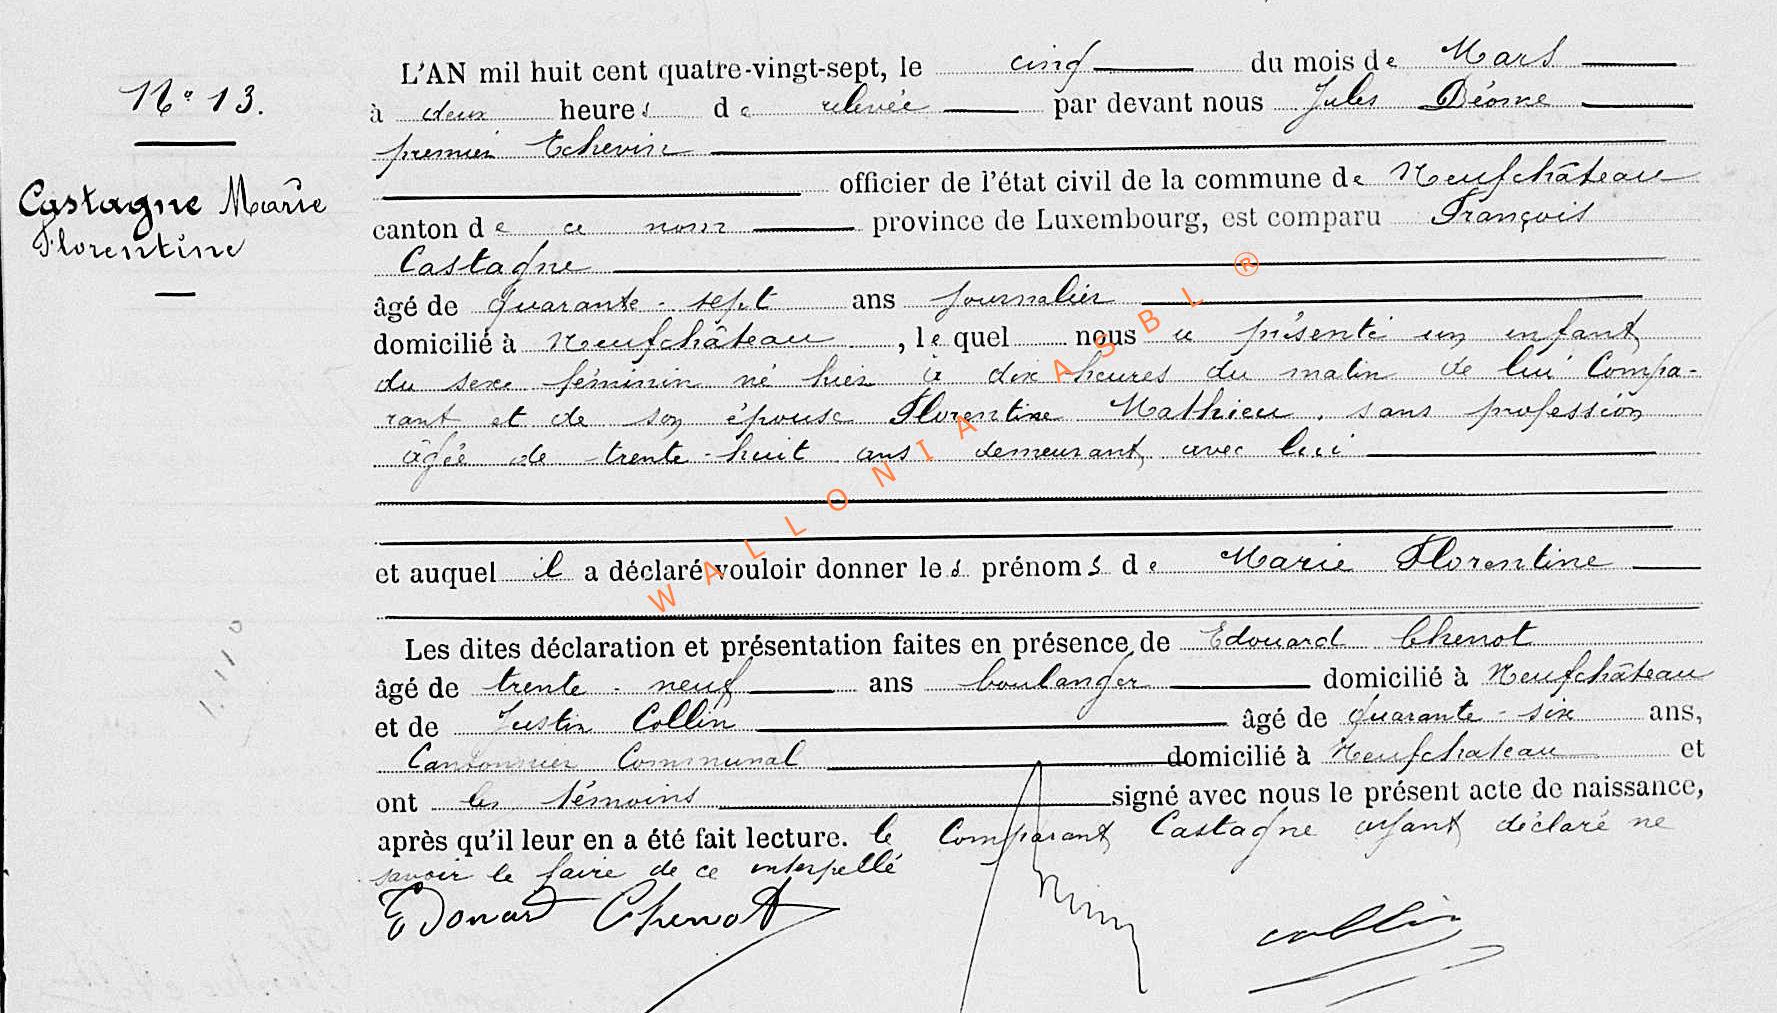 N° 13.
Castagne Marie
Florentine
L'AN mil huit cent quatre-vingt-sept, le cinq du mois de Mars
à deux heures de relevée par devant nous Jules Déome
premier Echevin
officier de l'état civil de la commune de Neufchâteau
canton de ce nom province de Luxembourg, est comparu François
Castagne
âgé de quarante-sept ans journalier
domicilié à Neufchâteau, lequel nous a présenté un enfant
du sexe féminin né hier à dix heures du matin de lui Compa-
rant et de son épouse Florentine Mathieu, sans profession
âgée de trente-huit ans demeurant avec lui
et auquel il a déclaré vouloir donner les prénoms de Marie Florentine
Les dites déclaration et présentation faites en présence de Edouard Chenot
âgé de trente-neuf ans boulanger domicilié à Neufchâteau
et de Justin Collin âgé de quarante-six ans,
Cantonnier Communal domicilié à Neufchateau et
ont les témoins signé avec nous le présent acte de naissance,
après qu'il leur en a été fait lecture. le Comparant Castagne ayant déclaré ne
savoir le faire de ce interpellé
Edouard Chenot
Collin
WALLONIA ASBL ®